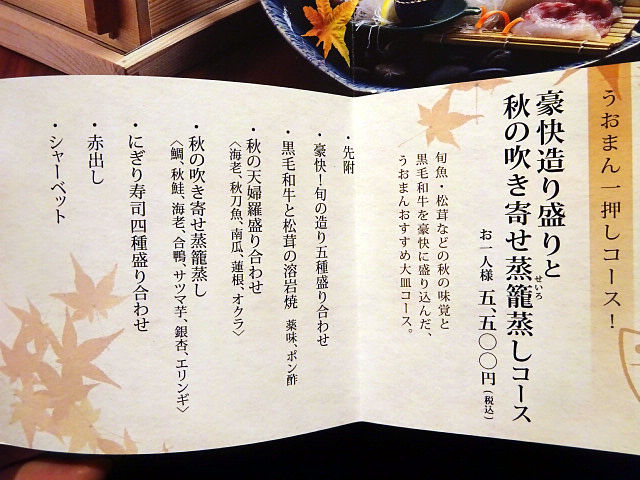 うおまん一押しコース！
豪快造り盛りと
秋の吹き寄せ蒸籠蒸しコース
せいろ
お一人様 五、五〇〇円（税込）
旬魚・松茸などの秋の味覚と
黒毛和牛を豪快に盛り込んだ、
うおまんおすすめ大皿コース。
・先附
・豪快！旬の造り五種盛り合わせ
・黒毛和牛と松茸の溶岩焼 薬味、ポン酢
・秋の天婦羅盛り合わせ
〈海老、秋刀魚、南瓜、蓮根、オクラ〉
・秋の吹き寄せ蒸籠蒸し
〈鯛、秋鮭、海老、合鴨、サツマ芋、銀杏、エリンギ〉
・にぎり寿司四種盛り合わせ
・赤出し
・シャーベット